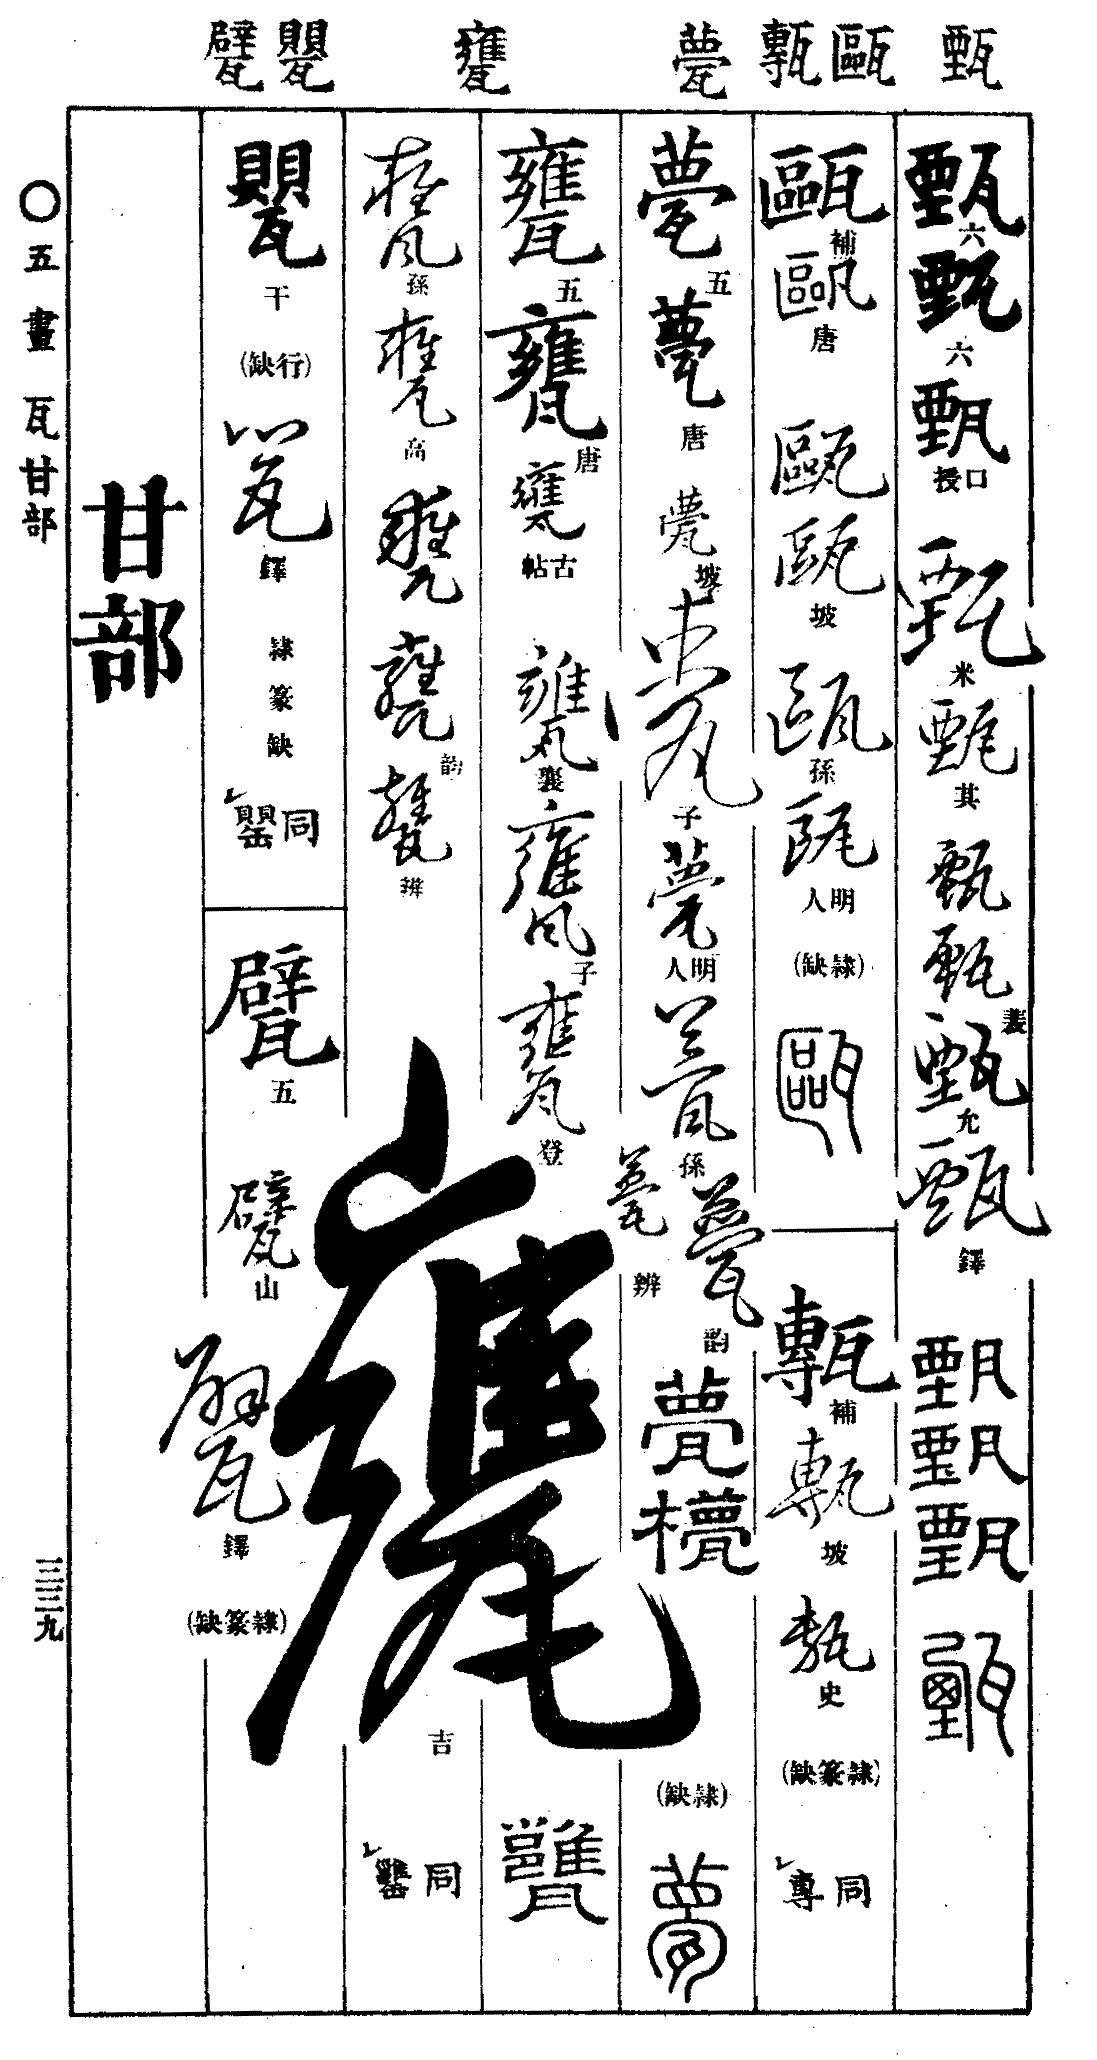 甄
甌 甎
甍
甕
甖 甓
甄 六
甄 六
甄 口授
甄 米
甄 其
甄
甄 叢
甄 允
甄 鐸
甄
甄
甄
甄
甌 補
甌 唐
甌
甌 坡
甌 孫
甌 明人
(隷缺)
甌
甎 補
甎 坡
甎 史
(隷篆缺)
同 専
甍 五
甍 唐
甍 坡
甍 子
甍 明人
甍 孫
甍 辨
甍 韵
甍
甍
(隷缺)
甍
甕 五
甕 唐
甕 古帖
甕 襄
甕 子
甕 登
甕
甕 孫
甕 高
甕
甕 韵
甕 辨
甕 吉
同 罋
甖 干
(行缺)
甖 鐸
隷篆缺
同 罌
甓 五
甓 山
甓 鐸
(隷篆缺)
甘部
〇五畫 瓦甘部
三三九